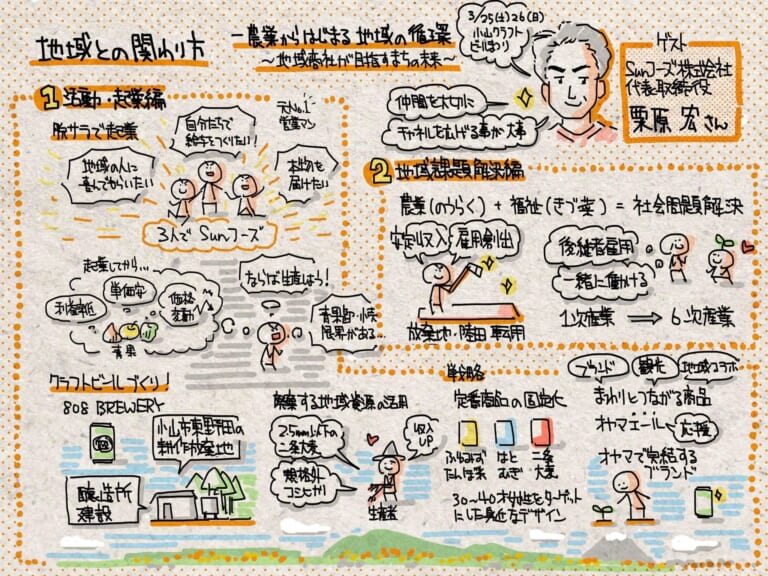 地域との関わり方
一農業からはじまる地域の循環
〜地域商社が目指すまちの未来〜
3/25(土)26(日)
小山クラフト
ビールまつり
ゲスト
Sunフーズ株式会社
代表取締役
栗原 宏さん
仲間を大切に
チャネルを広げる事が大事
1 活動・起業編
脱サラで起業
元No.1
営業マン
地域の人に
喜んでもらいたい
自分たちで
給与をつくりたい!
本物を
届けたい
3人でSunフーズ
起業してから…
利益率低
単価安
価格
変動
青果
ならば生産しよう!
青果卸・小売
限界がある…
2 地域課題解決編
農業(のうらく)+福祉(きづ菜)=社会問題解決
安定収入
雇用創出
放棄地・陸田 転用
後継者雇用
一緒に働ける
1次産業 ⟹ 6次産業
クラフトビールづくり!
808 BREWERY
小山市東野田の
耕作放棄地
醸造所
建設
廃棄する地域資源の活用
2.5mm以下の
二条大麦
規格外
コシヒカリ
収入
UP
生産者
戦略
定番商品の固定化
ふゆみず
たんぼ米
はと
むぎ
二条
大麦
30〜40才女性をターゲット
にした身近なデザイン
ブランド
観光
地域コラボ
まわりとつながる商品
オヤマエール
応援
オヤマで完結する
ブランド